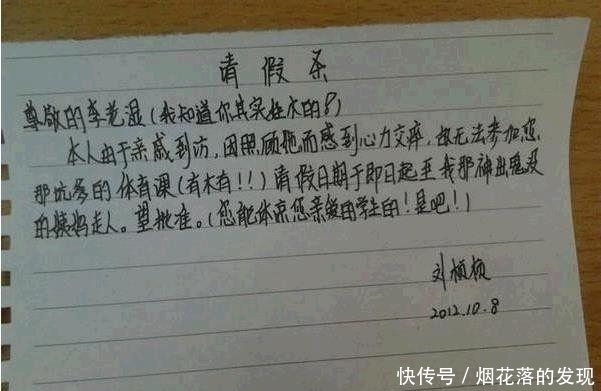 请假条
尊敬的李艺湿(我知道你其实姓水的!)
本人由于亲戚到访,因照顾她而感到心力交瘁,故无法参加您
那坑爹的体育课(有木有!!)请假日期于即日起至我那神出鬼没
的姨妈走人。望批准。(您能体谅您亲爱的学生的!是吧!)
刘桢桢
2012.10.8
快传号/烟花落的发现